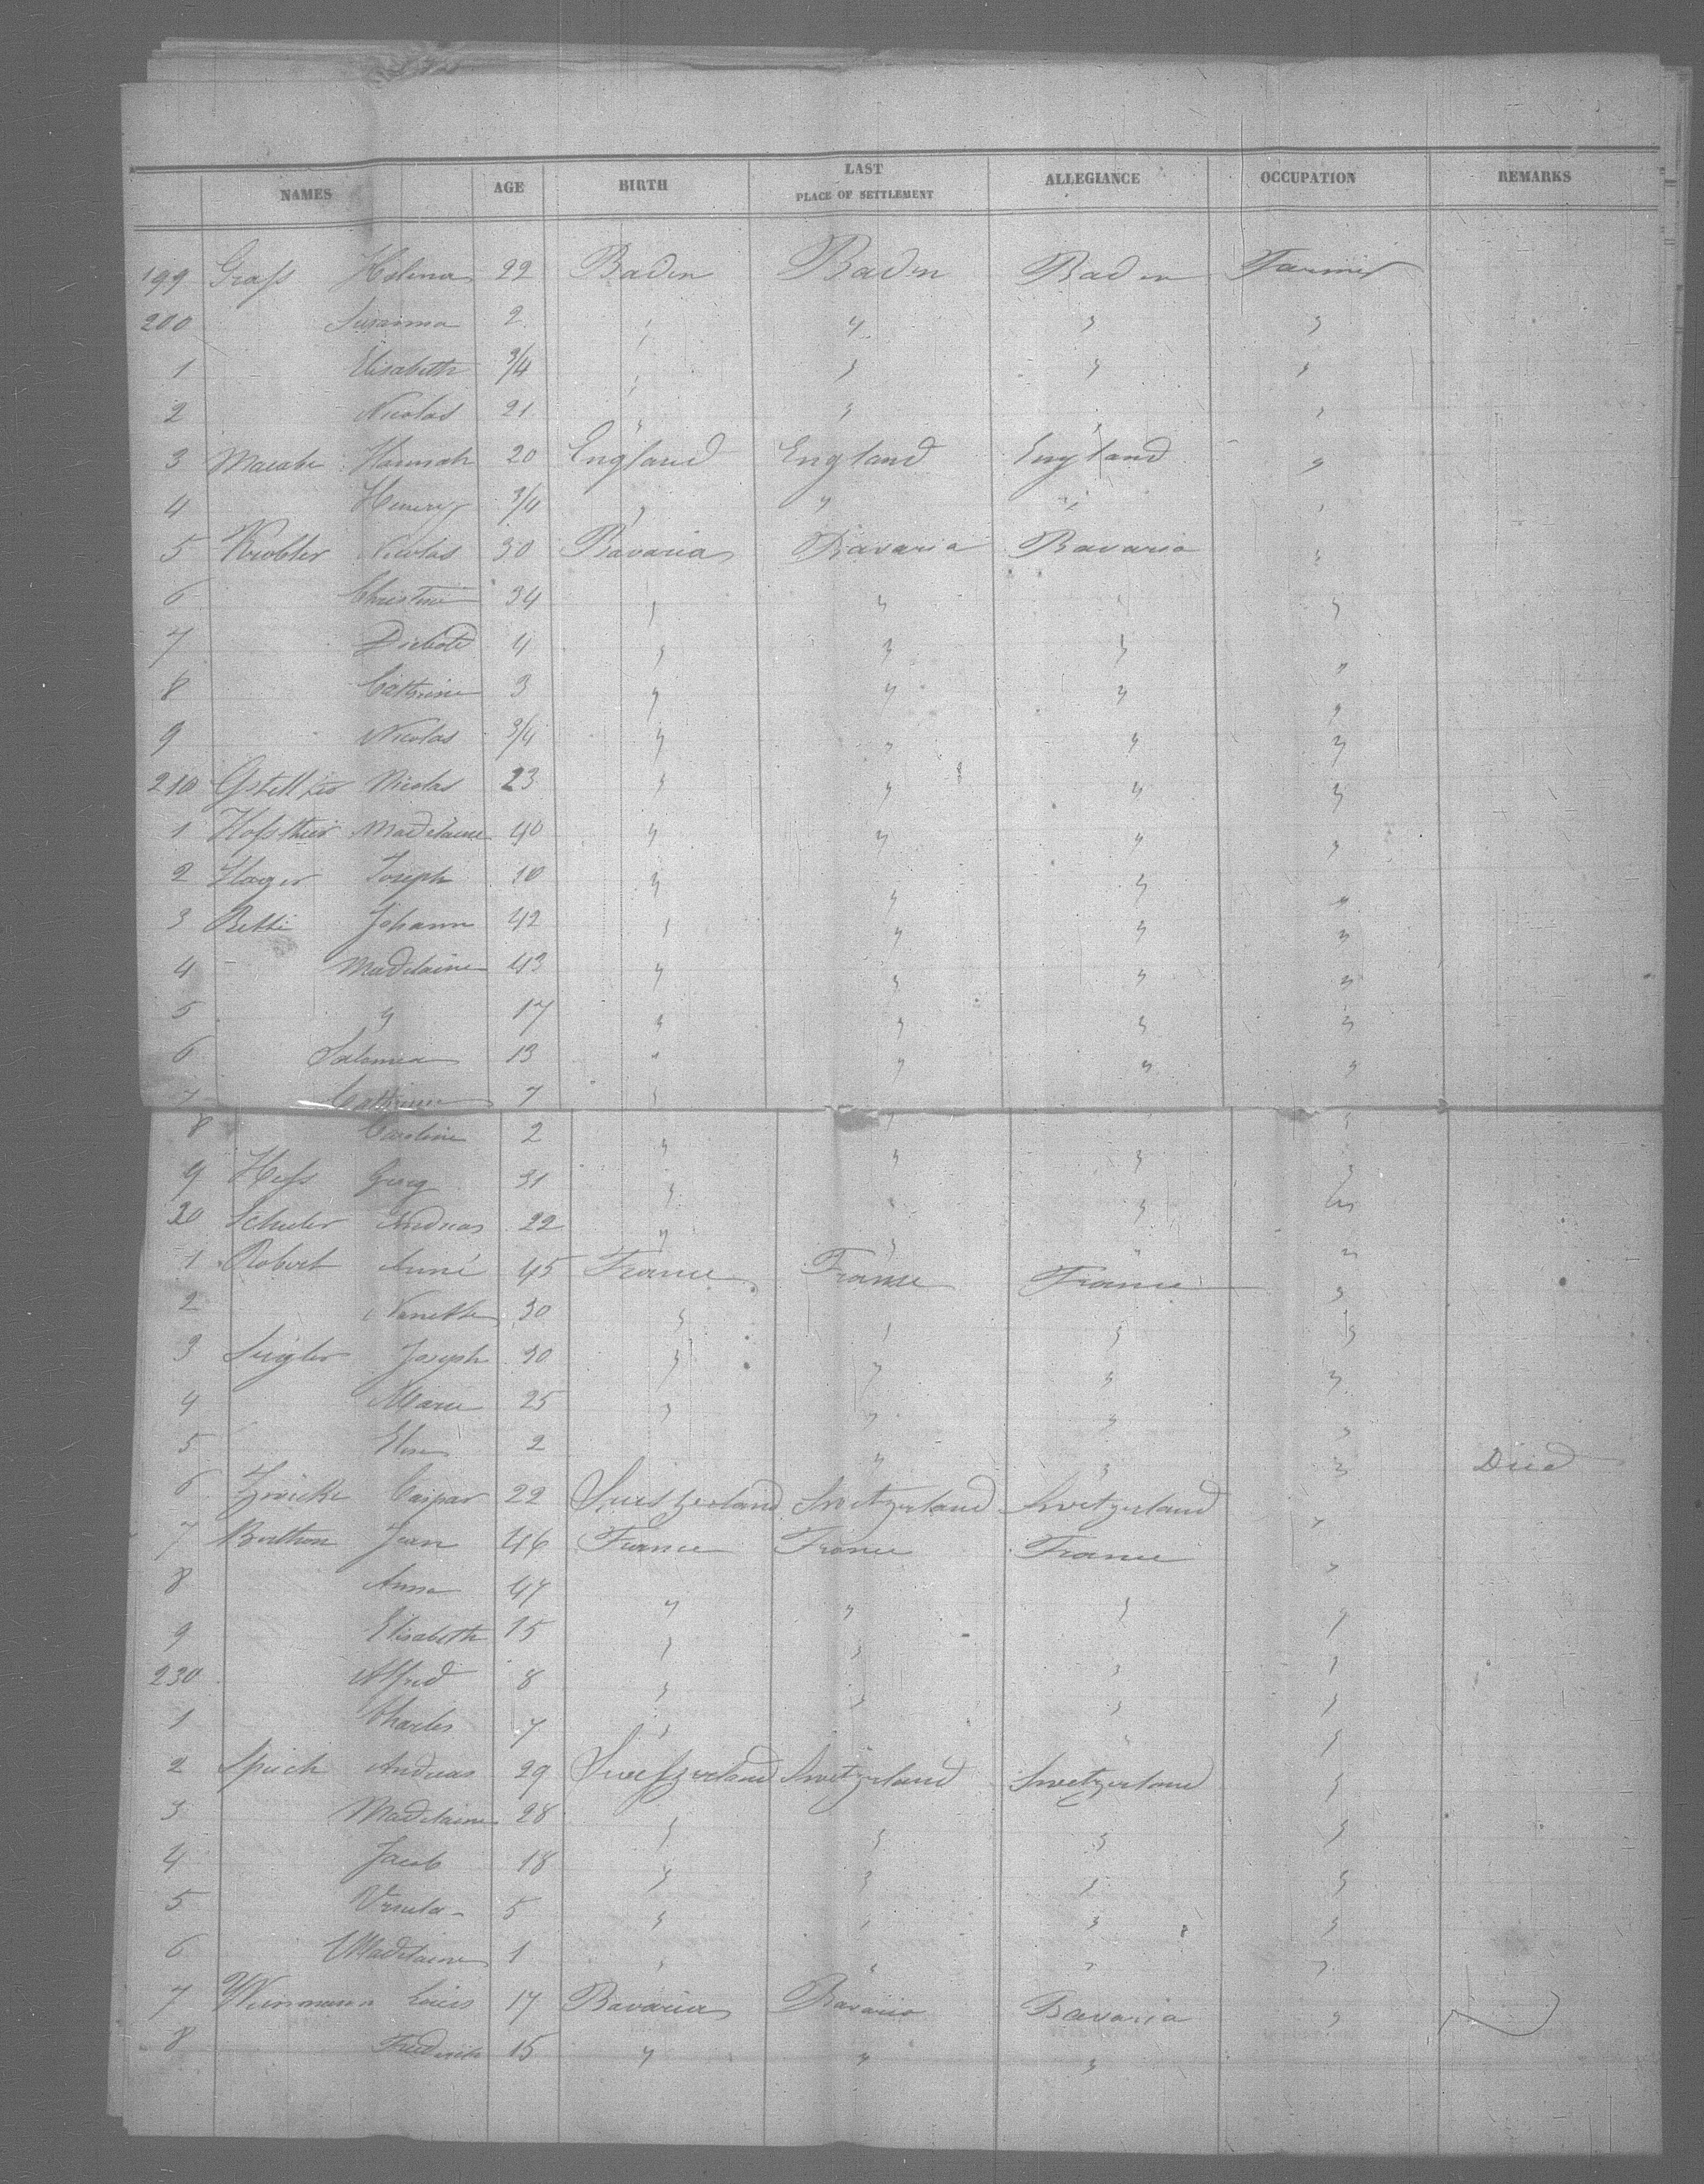 NAMES AGE BIRTH LAST PLACE OF SETTLEMENT ALLEGIANCE OCCUPATION REMARKS
199 Grass Helena 22 Baden Baden Baden Farmer
200 Susanna 2 " " " "
1 Elisabeth 3/4 " " " "
2 Nicolas 21 " " " "
3 Hannah 20 England England England "
4 Henery 3/4 " " " "
5 Nicolas 30 Bavaria Bavaria Bavaria "
6 Christine 34 " " " "
7 Diebold 4 " " " "
8 Cathrine 3 " " " "
9 Nicolas 3/4 " " " "
210 Nicolas 23 " " " "
1 Madelaine 40 " " " "
2 Hager Joseph 10 " " " "
3 Betti Johann 42 " " " "
4 Madelaine 43 " " " "
5 " 17 " " " "
6 Salomea 13 " " " "
7 Cathrine 7 " " " "
8 Caroline 2 " " " "
9 Hess Georg 31 " " " "
20 Schuler Andreas 22 " " " "
1 Robert Aimé 45 France France France "
2 Nanette 30 " " " "
3 Joseph 30 " " " "
4 Marie 25 " " " "
5 Elise 2 " " " Died
6 Zwicke Caspar 22 Switzerland Switzerland Switzerland "
7 Berthon Jean 46 France France France "
8 Anna 47 " " " "
9 Elisabeth 15 " " " "
230 Alfred 8 " " " "
1 Charles 7 " " " "
2 Spich Andreas 29 Switzerland Switzerland Switzerland "
3 Madelaine 28 " " " "
4 Jacob 18 " " " "
5 Ursula 5 " " " "
6 Madelaine 1 " " " "
7 Louis 17 Bavaria Bavaria Bavaria "
8 Frederick 15 " " "